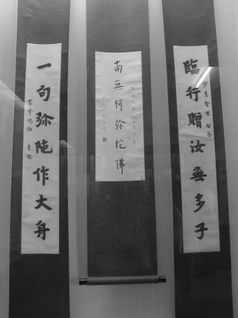 臨行贈汝無多子
南無阿弥陀佛
一句弥陀作大舟